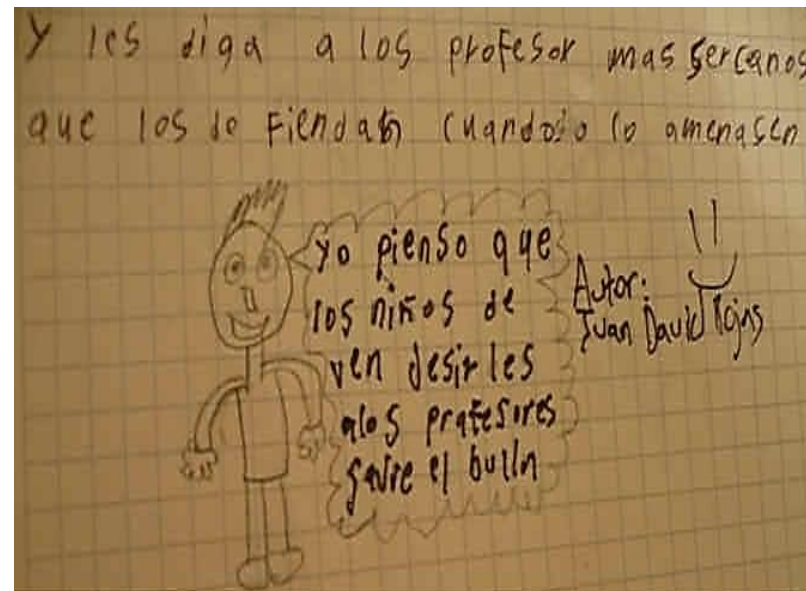 Y les diga a los profesor mas sercanos
que los de fiendan cuando lo amenasen
yo pienso que
los niños de
ven desirles
alos profesores
savre el bulln
Autor:
Juan David Rojas